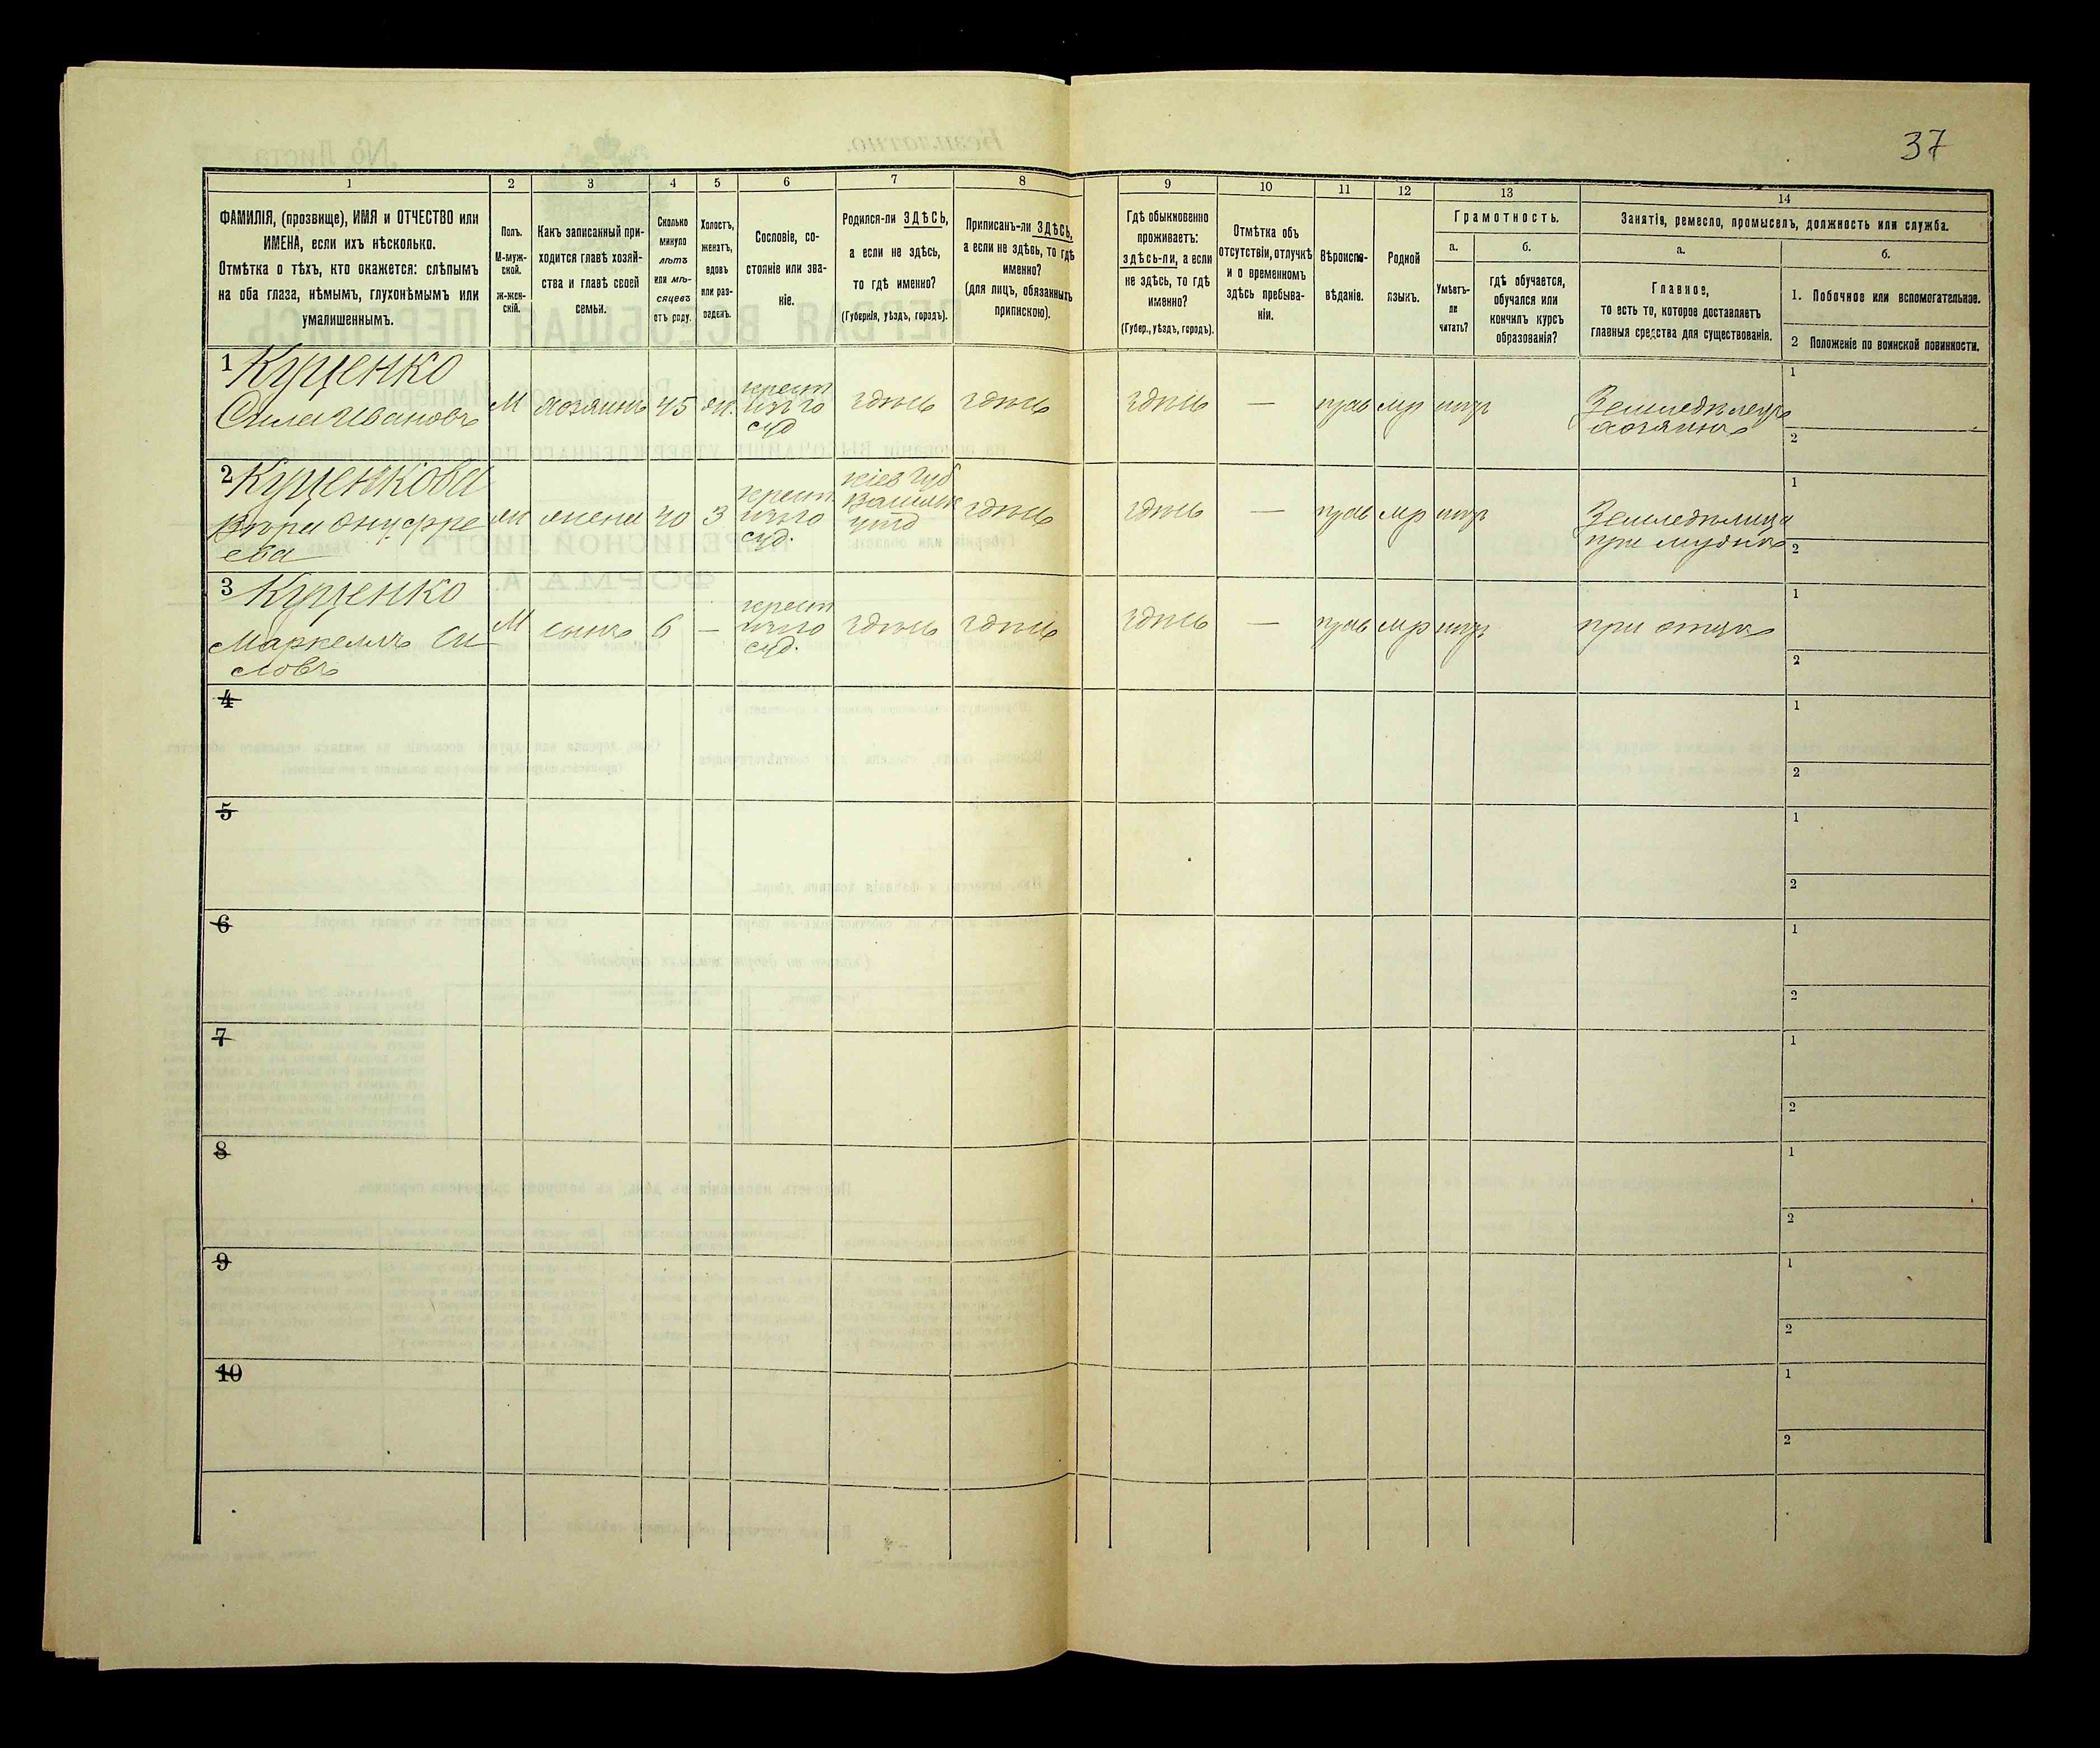 37
1
2
3
4
5
6
7
8
9
10
11
12
13
14
ФАМИЛІЯ, (прозвище), ИМЯ и ОТЧЕСТВО или
ИМЕНА, если ихъ нѣсколько.
Отмѣтка о тѣхъ, кто окажется: слѣпымъ
на оба глаза, нѣмымъ, глухонѣмымъ или
умалишеннымъ.
Полъ.
М-муж-
ской.
ж-жен-
скій.
Какъ записанный при-
ходится главѣ хозяй-
ства и главѣ своей
семьи.
Сколько
минуло
лѣтъ
или мѣ-
сяцевъ
отъ роду.
Холостъ,
женатъ,
вдовъ
или раз-
веденъ.
Сословіе, со-
стояніе или зва-
ніе.
Родился-ли ЗДѢСЬ,
а если не здѣсь,
то гдѣ именно?
(Губернія, уѣздъ, городъ).
Приписанъ-ли ЗДѢСЬ,
а если не здѣсь, то гдѣ
именно?
(для лицъ, обязанныхъ
припискою).
Гдѣ обыкновенно
проживаетъ:
здѣсь-ли, а если
не здѣсь, то гдѣ
именно?
(Губер., уѣздъ, городъ).
Отмѣтка объ
отсутствіи, отлучкѣ
и о временномъ
здѣсь пребыва-
ніи.
Вѣроиспо-
вѣданіе.
Родной
языкъ.
Грамотность.
а.
Умѣетъ-
ли
читать?
б.
гдѣ обучается,
обучался или
кончилъ курсъ
образованія?
Занятія, ремесло, промыселъ, должность или служба.
а.
Главное,
то есть то, которое доставляетъ
главныя средства для существованія.
б.
1. Побочное или вспомогательное.
2 Положеніе по воинской повинности.
1 Куценко
Сила Ивановъ
М
хозяинъ
45
жн.
крест
изъ го
суд
здѣсь
здѣсь
здѣсь
—
прав
мр
нѣтъ
Земледѣлецъ
хозяинъ
1
2
2 Куценкова
Вѣра Онуфре
ева
жн
жена
40
3
крест
суд.
кіев губ
уѣзд
здѣсь
здѣсь
—
прав
мр
нѣтъ
Земледѣлица
при мужѣ
1
2
3 Куценко
Маркеллъ Си
ловъ
М
сынъ
6
—
крест
суд.
здѣсь
здѣсь
здѣсь
—
прав
мр
нѣтъ
при отцѣ
1
2
4
1
2
5
1
2
6
1
2
7
1
2
8
1
2
9
1
2
10
1
2